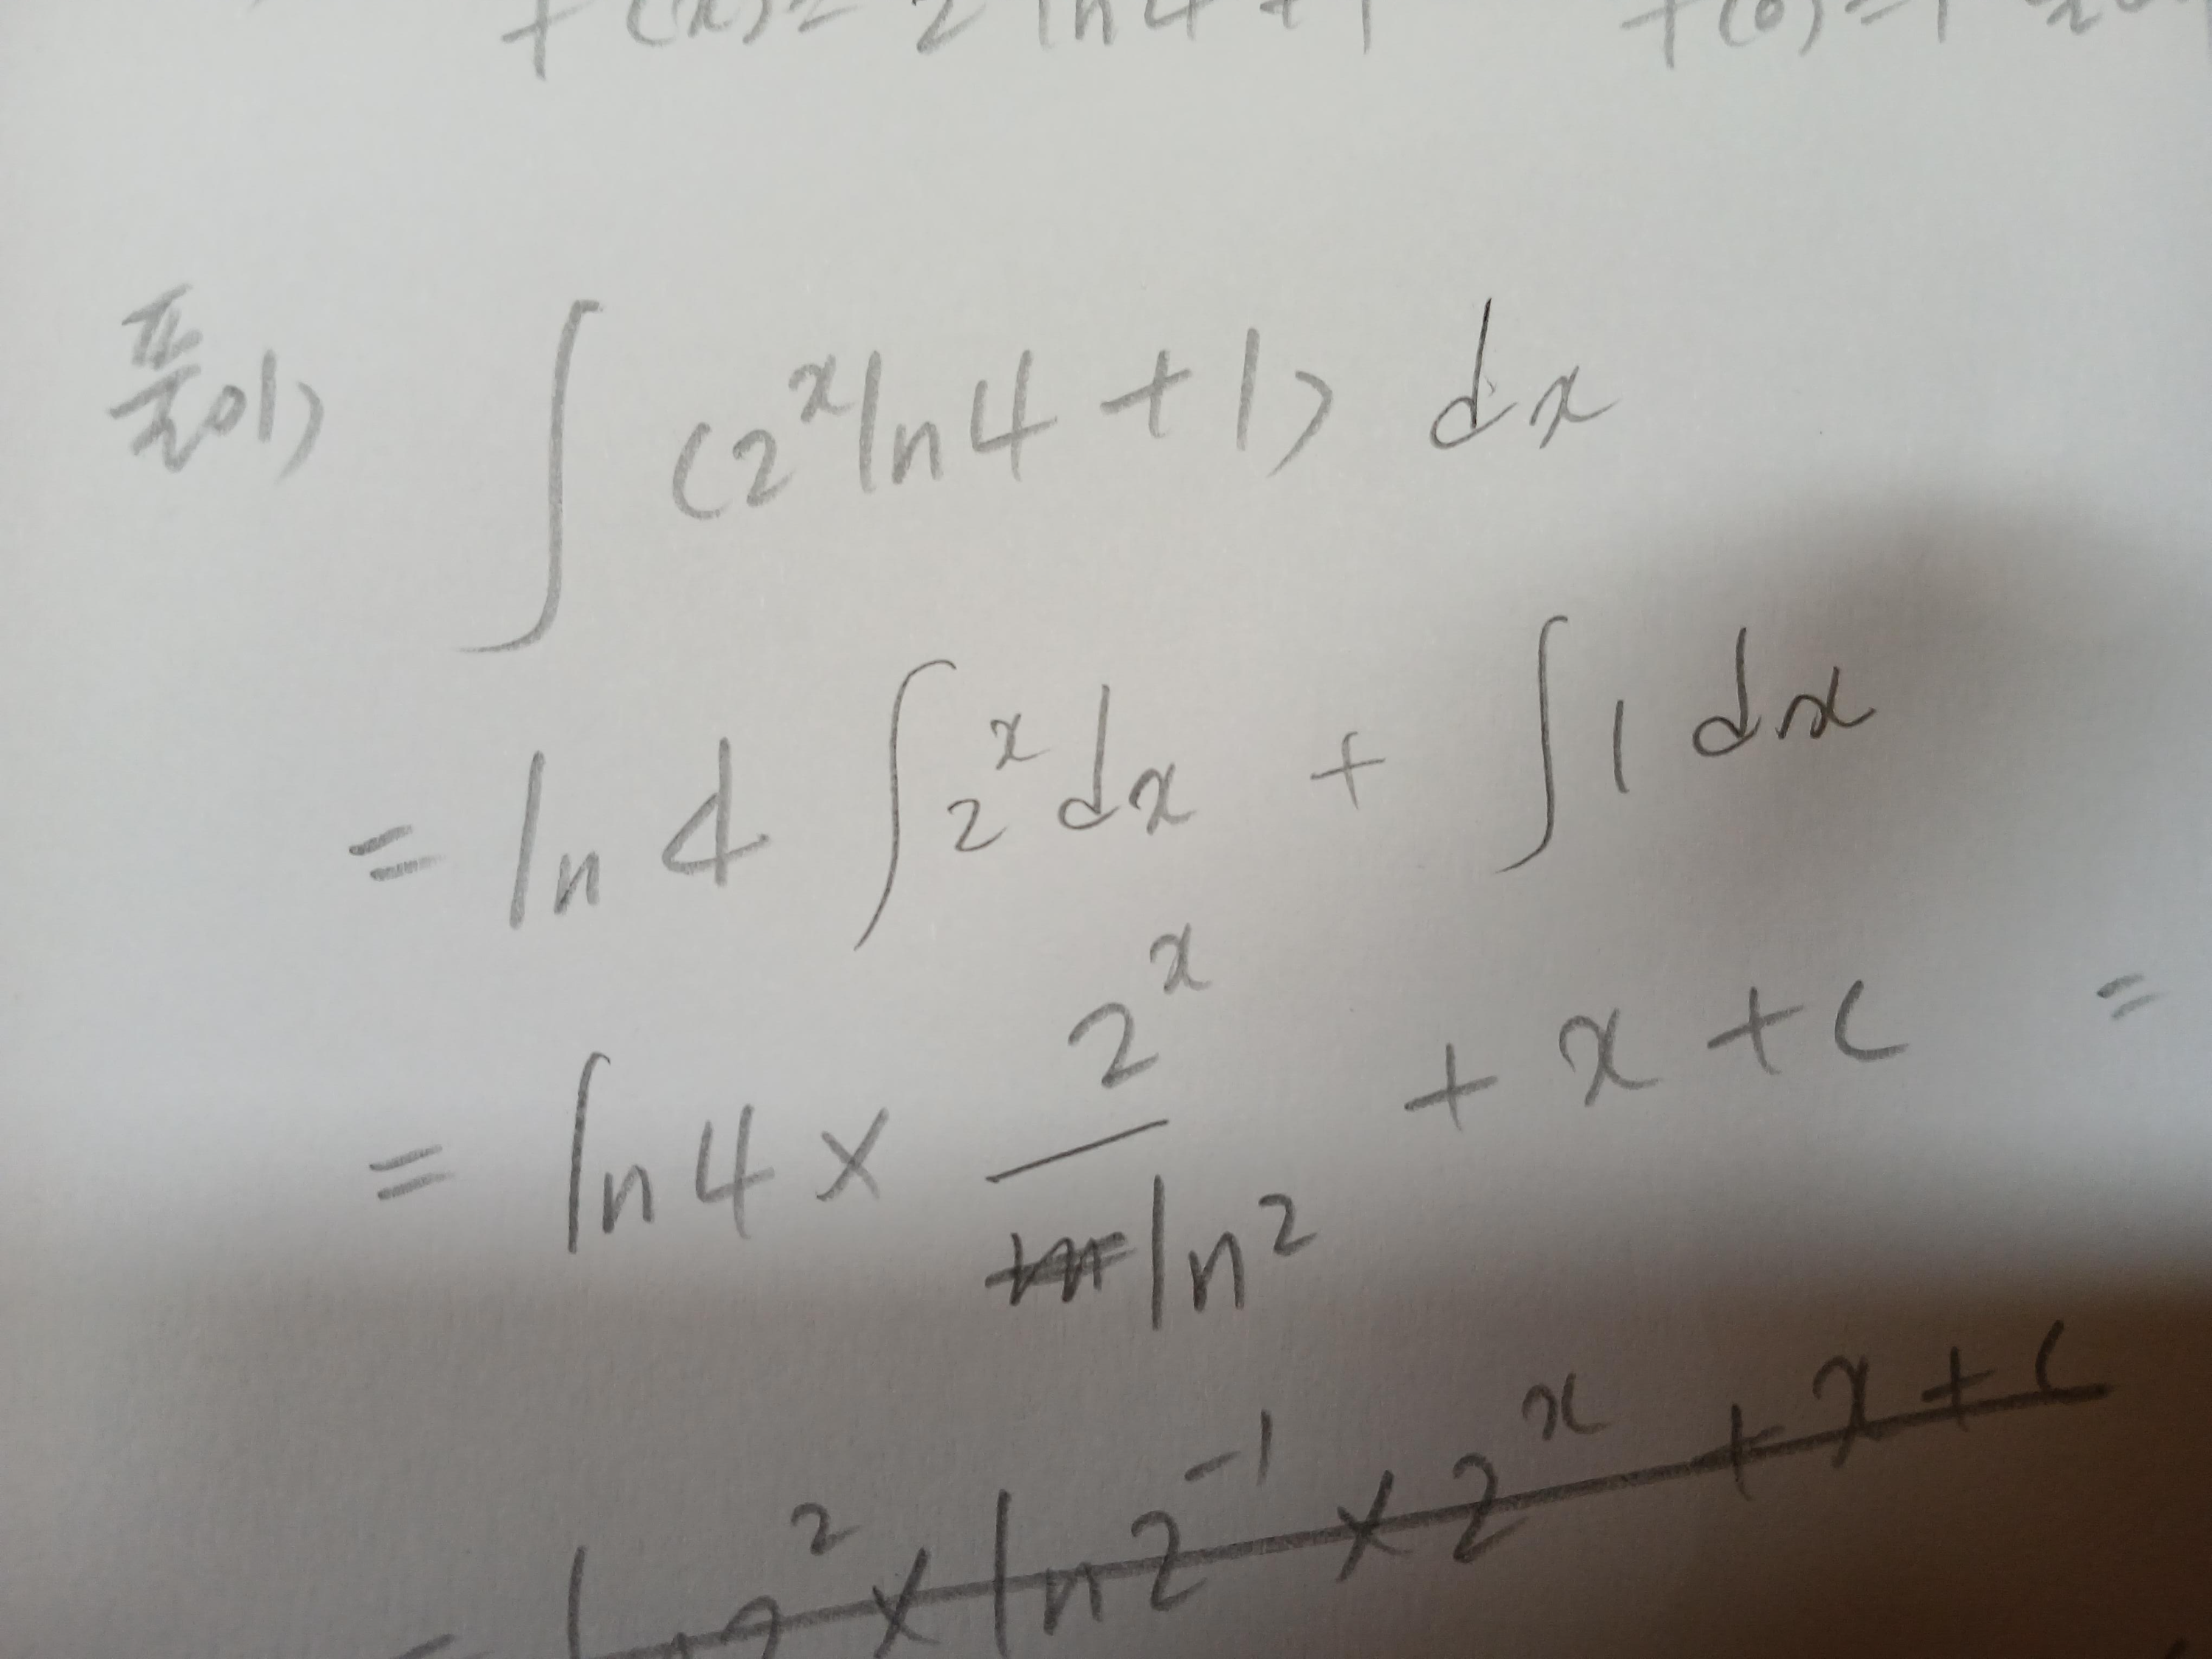 f(x)= 2 ln4+1 f(0)=1
풀이) ∫(2ˣln4+1) dx
= ln4 ∫2ˣdx + ∫1dx
= ln4 × 2ˣ/ln2 + x + c =
= ln2² × ln2⁻¹ × 2ˣ + x + c